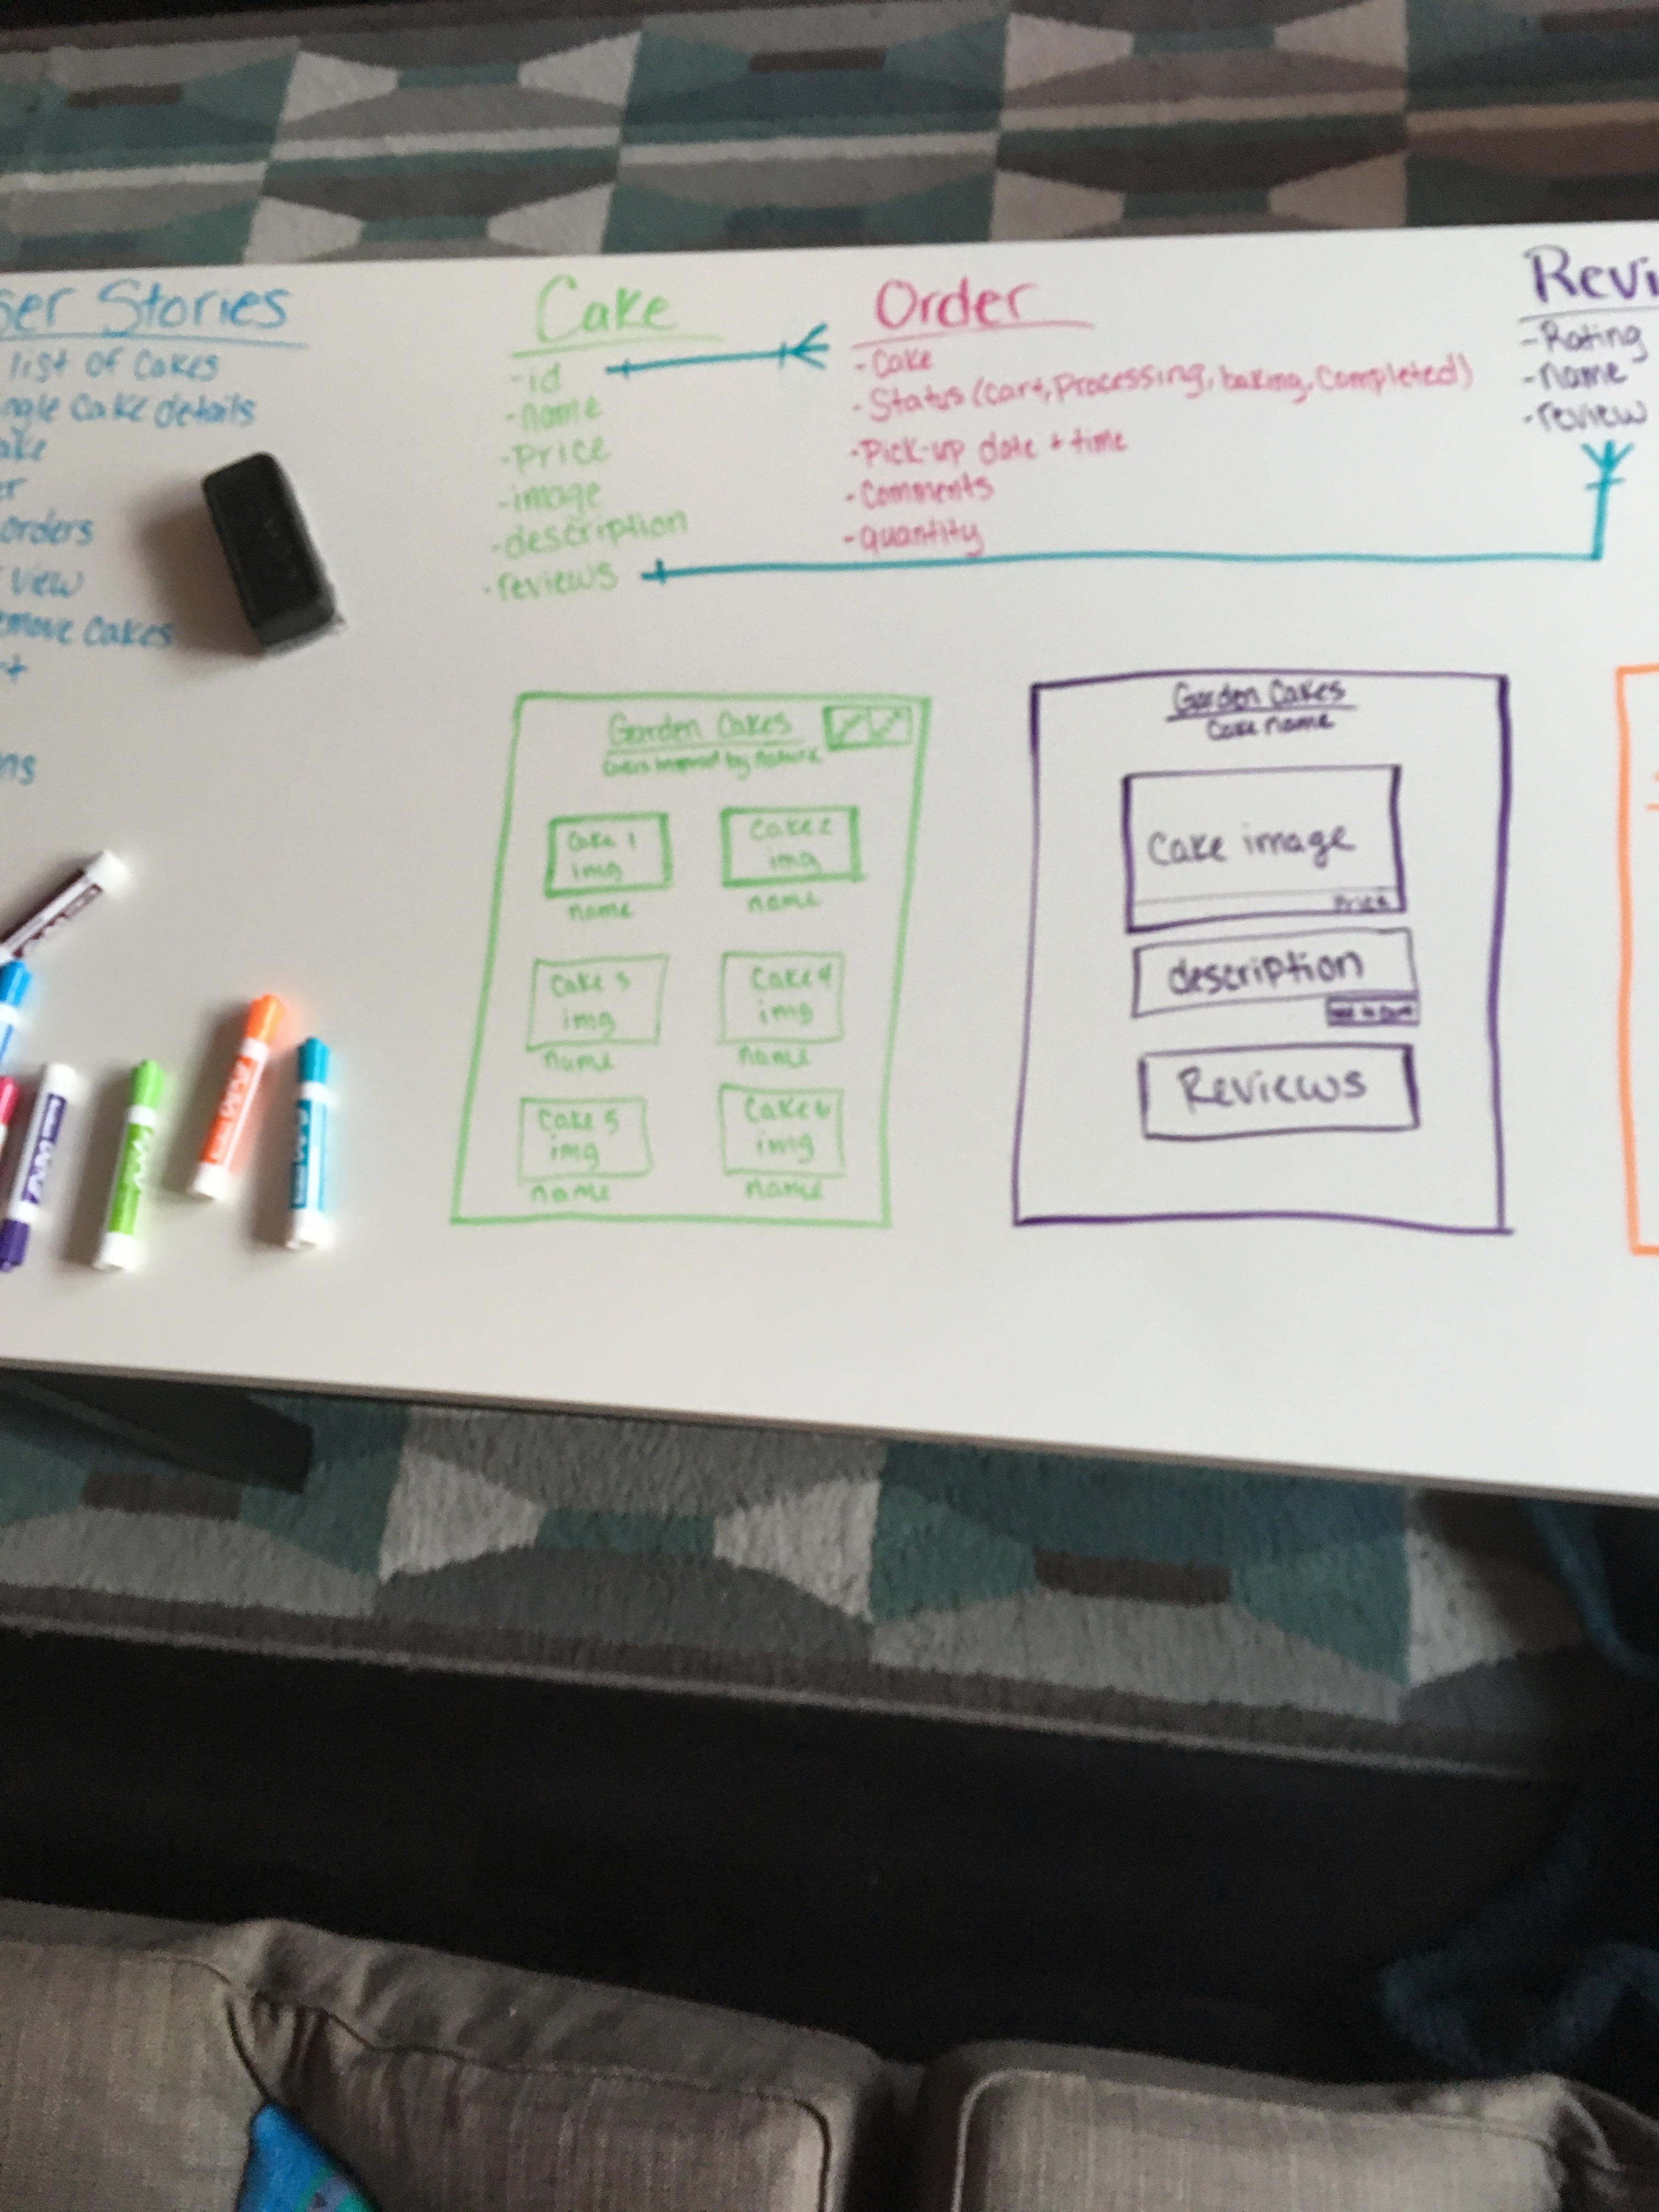 ser Stories
list of Cakes
ngle Cake details
ake
er
orders
view
emove Cakes
ns
Cake
-id
-name
-Price
-image
-description
-reviews
Order
-Cake
-Status (cart, Processing, baking, Completed)
-Pick-up date + time
-Comments
-quantity
Revi
-Rating
-name
-review
Garden Cakes
Inspired by Nature
Cake 1
img
name
Cake 2
img
name
Cake 3
img
name
Cake 4
img
name
Cake 5
img
name
Cake 6
img
name
Garden Cakes
Cake name
Cake image
Price
description
add to cart
Reviews
EXPO